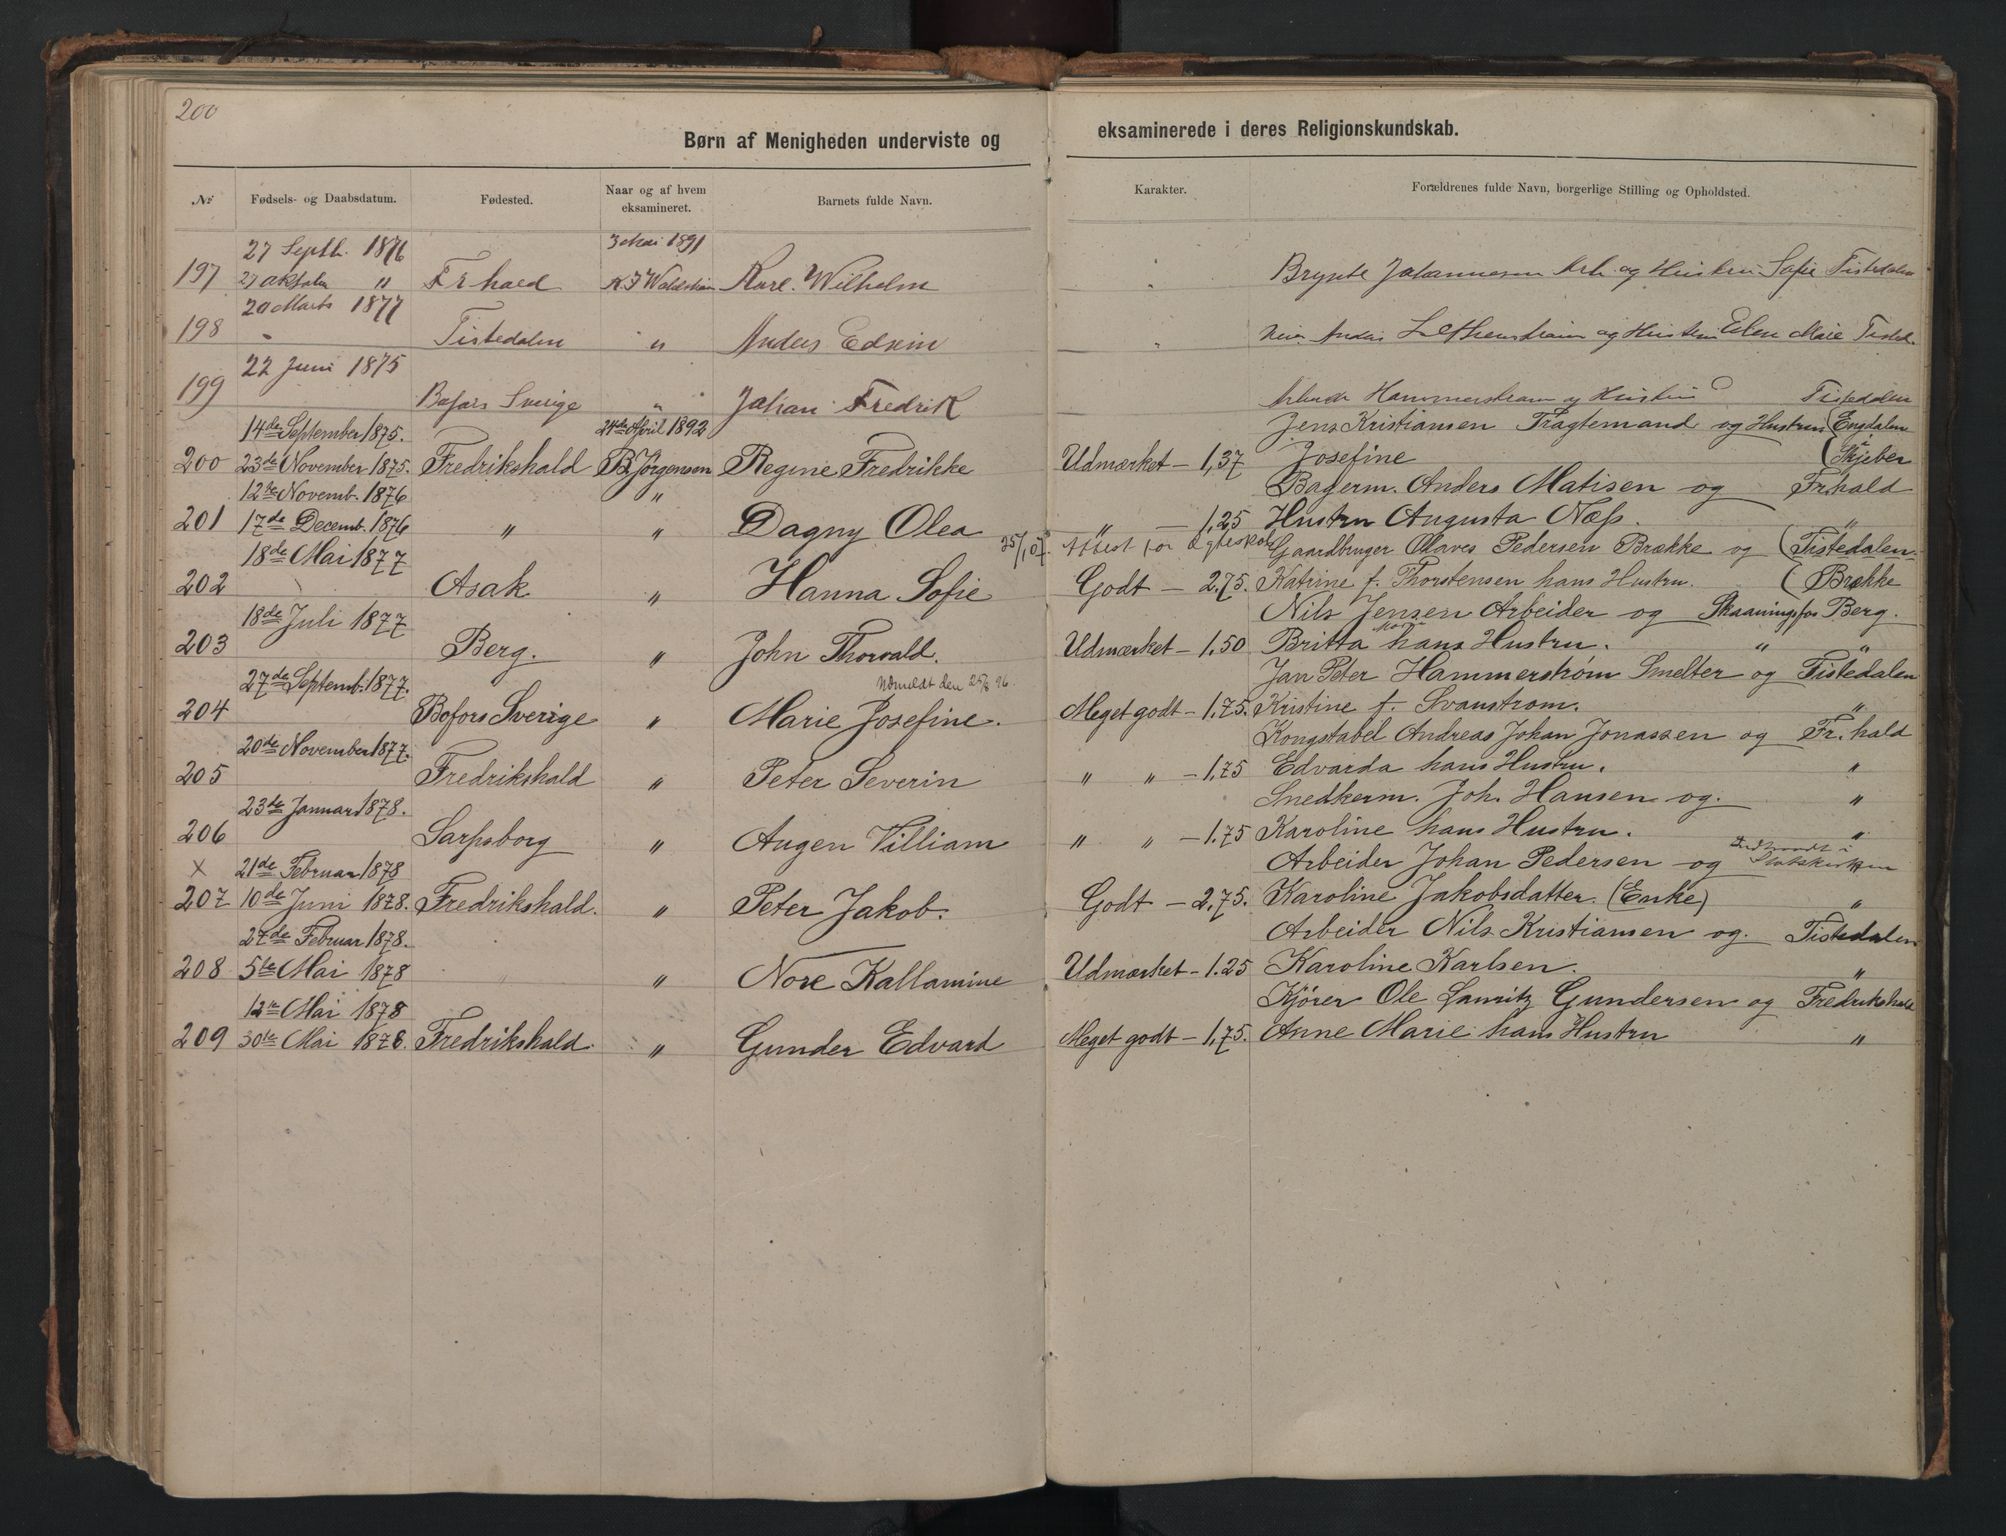 200
Børn af Menigheden underviste og eksaminerede i deres Religionskundskab.
№ Fødsels- og Daabsdatum. Fødested. Naar og af hvem eksamineret. Barnets fulde Navn. Karakter. Forældrenes fulde Navn, borgerlige Stilling og Opholdsted.
27 Septb. 1876 3 Mai 1891
197 " Frhald Karl Wilhelm " og Hustru Sofie Tistedalen
20 Marts 1877
198 " Tistedalen " Anders Edvin " Anders og Hustru Elen Marie Tisted.
22 Juni 1875
199 Bofors Sverige " Johan Fredrik Hammerstrøm og Hustru Tistedalen
14de September 1875. 24de April 1892 Jens Kristiansen Fragtemand og Hustru (Engdalen
200 23de November 1875. Fredrikshald B. Jørgensen Regine Fredrikke Udmærket – 1,37 Josefine (Skjeber
12te Novemb. 1876 " Bagerm. Anders Matisen og Fr.hald
201 17de Decemb. 1876 " " Dagny Olea " – 1,25 Hustru Augusta Næss. "
18de Mai 1877 Attest for Gaardbruger Olaves Pedersen Brække og (Tistedalen
202 Asak " Hanna Sofie Godt – 2,75. Katrine f. Thorstensen hans Hustru. (Brække
18de Juli 1877 Nils Jensen Arbeider og Berg.
203 Berg. " John Thorvald. Udmærket – 1,50 Britta hans Hustru. " "
27de Septemb. 1877. Udmeldt den 25/8 96. Jan Peter Hammerstrøm Smelter og Tistedalen
204 Bofors Sverige " Marie Josefine. Meget godt – 1,75. Kristine f. Svanstrom. "
20de November 1877. Kongstabel Andreas Johan Jonassen og Fr.hald
205 Fredrikshald " Peter Severin " " – 1,75 Edvarda hans Hustru. "
23de Januar 1878. Snedkerm. Joh. Hansen og. "
206 Sarpsborg " Augen Villiam " " – 1,75 Karoline hans Hustru. "
X 21de Februar 1878 Arbeider Johan Pedersen og Statskirken
207 10de Juni 1878. Fredrikshald. " Peter Jakob. Godt – 2,75. Karoline Jakobsdatter. (Enke) "
27de Februar 1878. Arbeider Nils Kristiansen og. Tistedalen
208 5te Mai 1878 " " Nore Kallamine Udmærket – 1.25 Karoline Karlsen. "
12te Mai 1878 Kjører Ole Lauritz Gundersen og Fredrikshald
209 30te Mai 1878. Fredrikshald. " Gunder Edvard Meget godt – 1,75. Anne Marie hans Hustru "